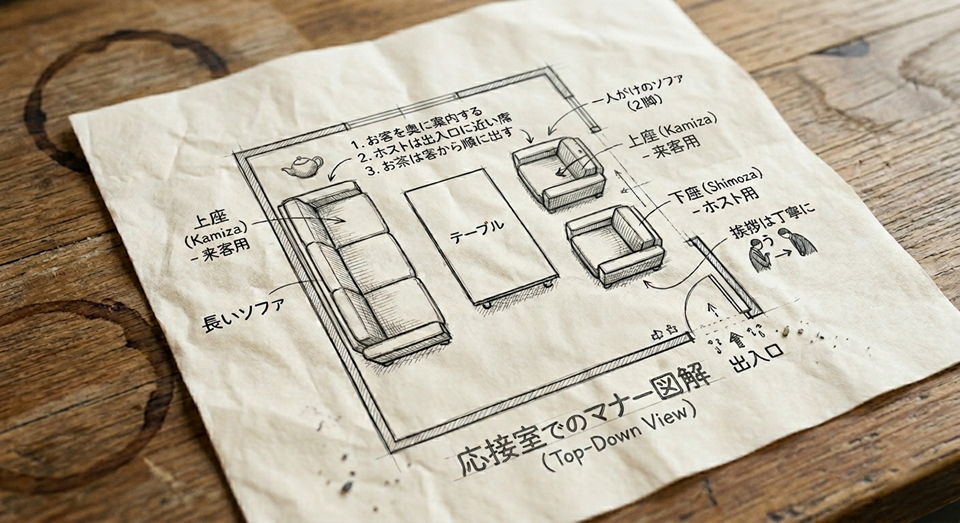 1. お客を奥に案内する
2. ホストは出入口に近い席
3. お茶は客から順に出す
一人がけのソファ
(2脚)
上座(Kamiza)
- 来客用
下座(Shimoza)
- ホスト用
挨拶は丁寧に
上座
(Kamiza)
- 来客用
長いソファ
テーブル
出入口
応接室でのマナー図解
(Top-Down View)